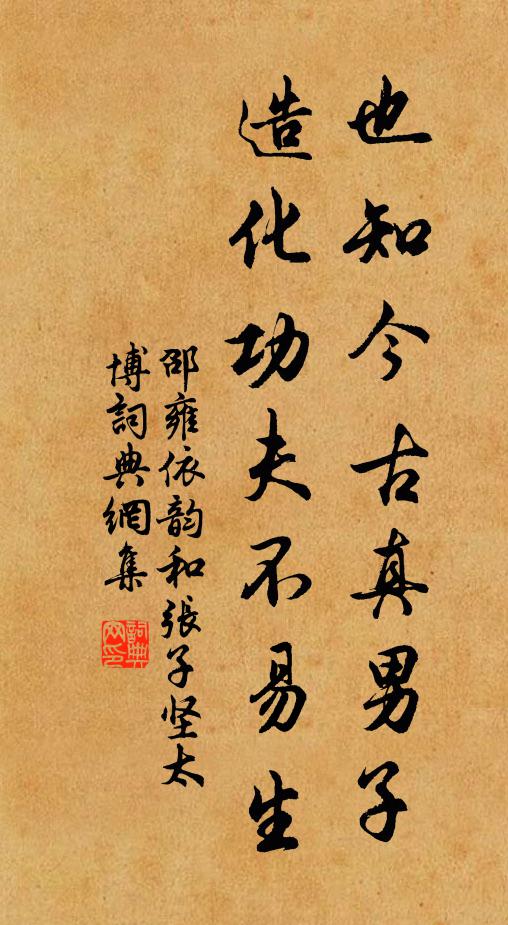 也知今古真男子
造化功夫不易生
邵雍依韵和張子坚太
博詞典網集
詞典
网印